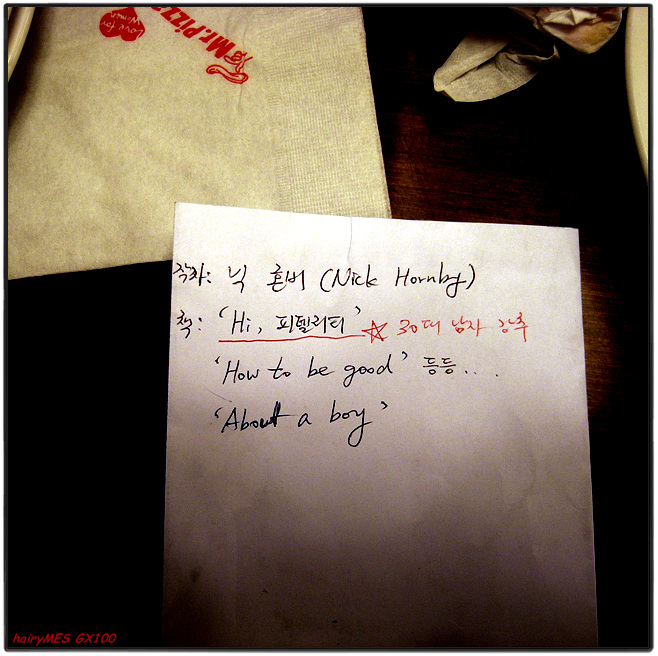 Love for Women
Mr.Pizza
작가: 닉 혼비 (Nick Hornby)
책: 'Hi, 피델리티' ☆ 30대 남자 강추
'How to be good' 등등....
'About a boy'
hairyMES GX100